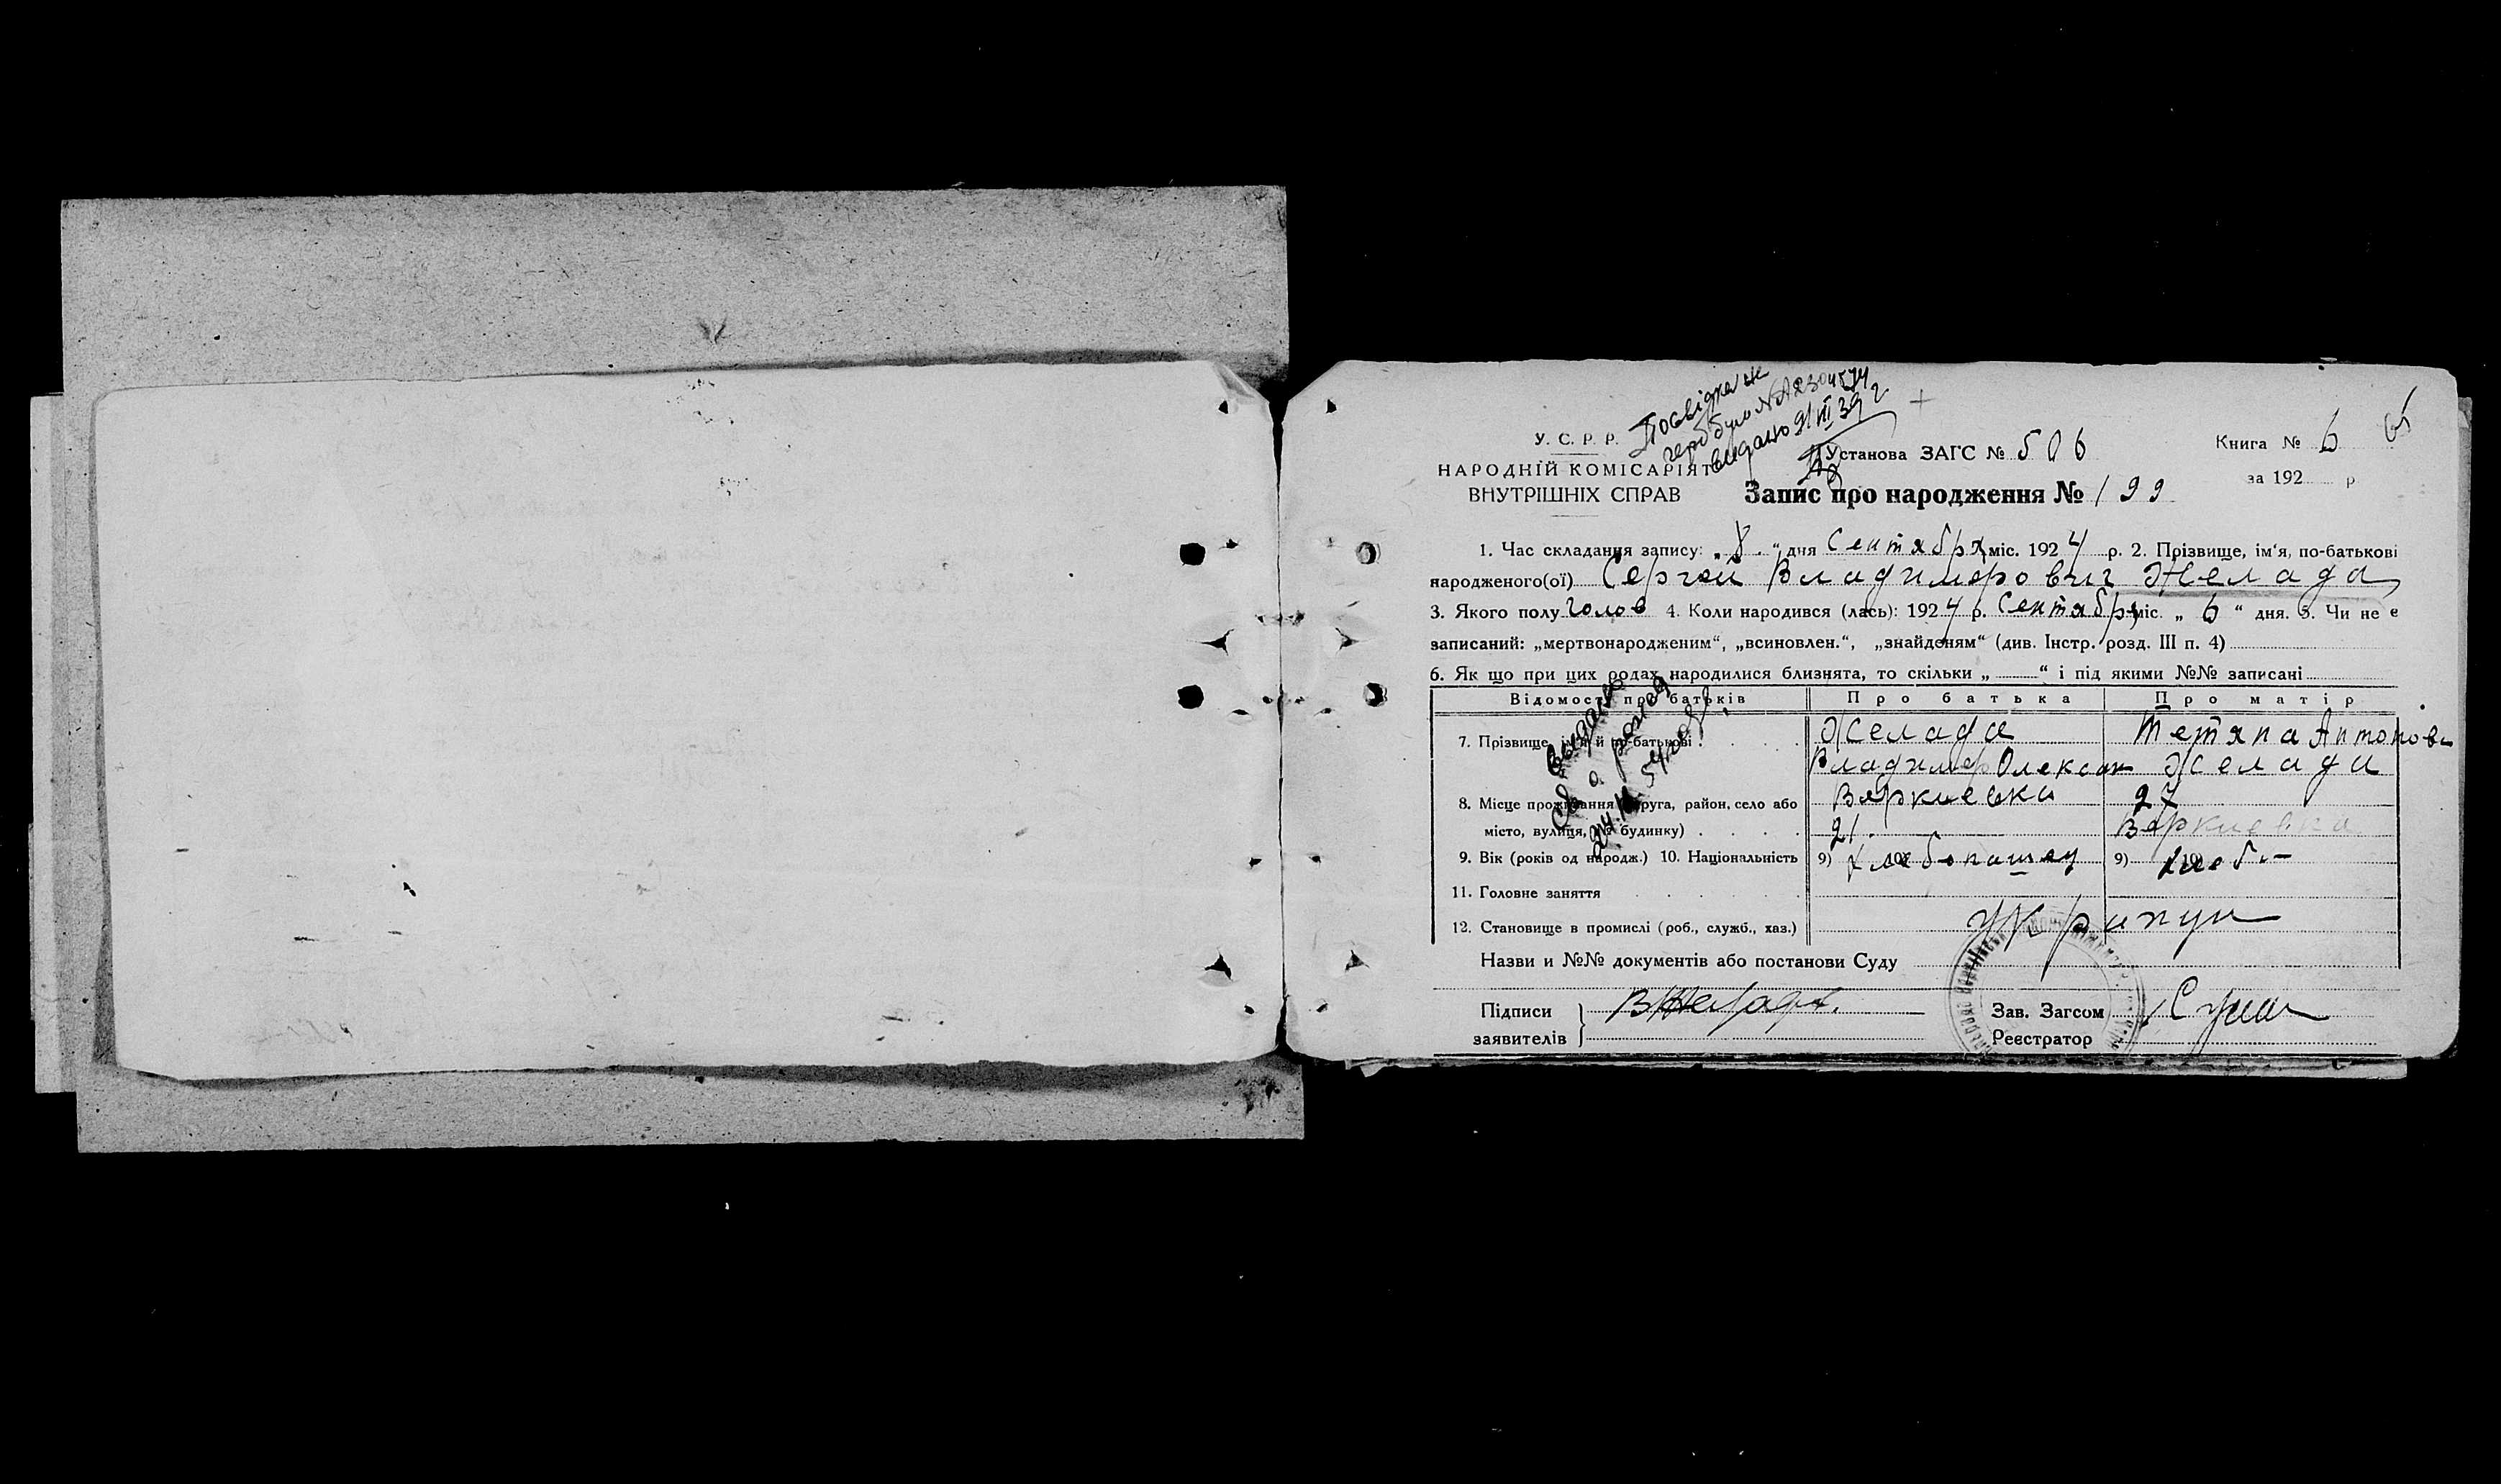 Посвідчен
видано 9/III 39 г.
У. С. Р. Р.
НАРОДНІЙ КОМІСАРІЯТ
ВНУТРІШНІХ СПРАВ
Установа ЗАГС № 506
Книга № 6
за 192 р
Запис про народження № 199
1. Час складання запису: „ 8 . “ дня Сентября міс. 1924 р. 2. Прізвище, ім‘я, по-батькові
народженого(ої) Сергей Владимерович Желада
3. Якого полу голов 4. Коли народився (лась): 1924 р. Сентября міс. „ 6 “ дня. 5. Чи не є
записаний: „мертвонародженим“, „всиновлен.“, „знайденям“ (див. Інстр. розд. III п. 4)
6. Як що при цих родах народилися близнята, то скільки „ “ і під якими №№ записані
Відомості про батьків Про батька Про матір
7. Прізвище, ім‘я й по-батькові Желада Тетяна Антонов
Владимер Олексан Желада
8. Місце проживання округа, район, село або Вяркиевка 27
місто, вулиця, № будинку) 21. Веркиевка
9. Вік (років од народж.) 10. Національність 9) 10) Хлебопашец 9) 10) хлеб.
11. Головне заняття
12. Становище в промислі (роб., служб., хаз.) Украинци
Назви и №№ документів або постанови Суду
Підписи
заявителів
В Желада.
Зав. Загсом
Реєстратор
Видано